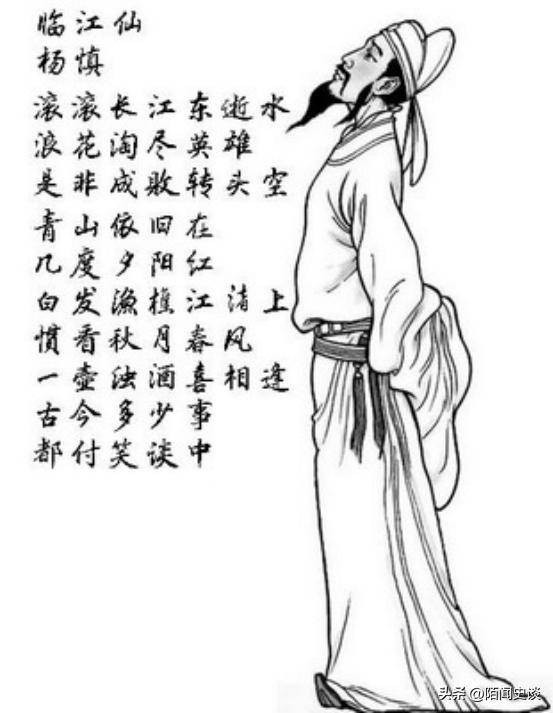 临江仙
杨慎
滚滚长江东逝水
浪花淘尽英雄
是非成败转头空
青山依旧在
几度夕阳红
白发渔樵江渚上
惯看秋月春风
一壶浊酒喜相逢
古今多少事
都付笑谈中
头条 @陌闻史谈